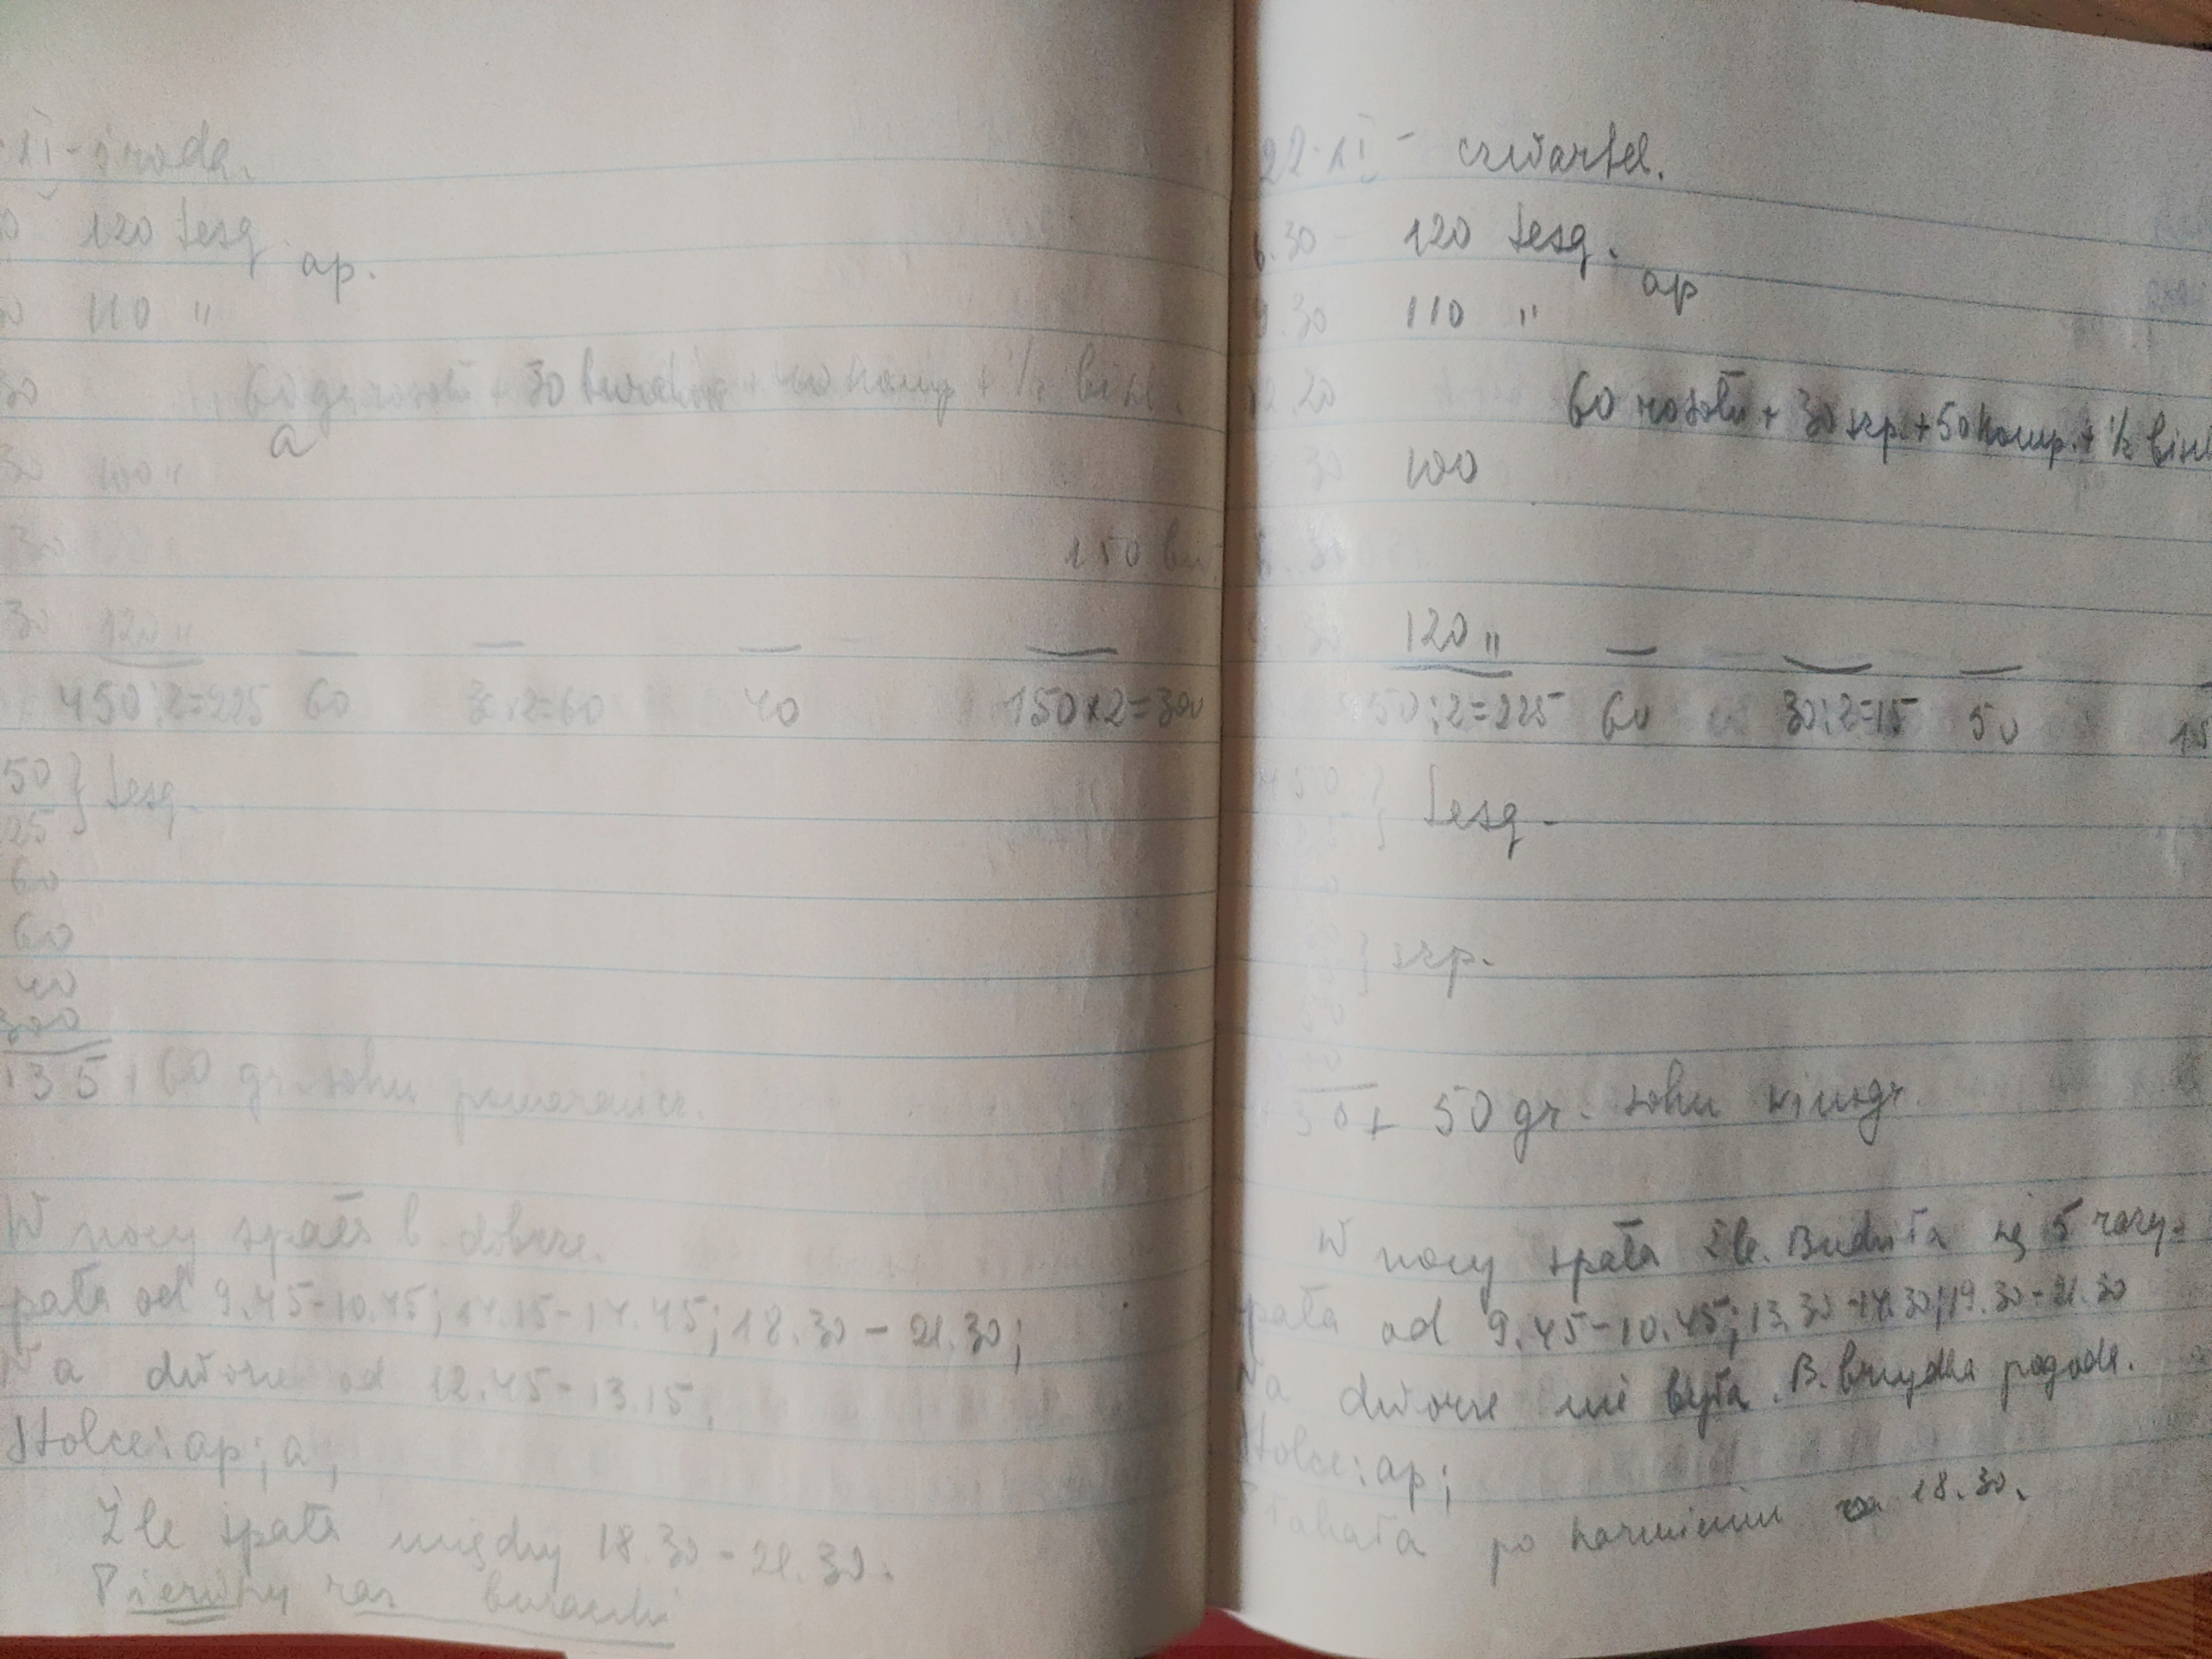 XI - środa.
120 Sesq. ap.
110 "
30 60 gr rosołu + 30 buraków + 40 komp + 1/2 biszk.
a
30 100 "
30 150 bu.
30 120 "
450:2=225 60 30.2=60 40 150x2=300
50 } Sesq.
25
60
60
40
300
135 + 60 gr. soku pomarańcz.
W nocy spała b. dobrze.
pała od 9.45-10.45; 14.15-14.45; 18.30-21.30;
Na dworze od 12.45-13.15.
Stolce: ap; a;
Źle spała między 18.30-21.30.
Pierwszy raz buraczki
22.XI - czwartek.
6.30 - 120 Sesq. ap
9.30 110 "
12.20 60 rosołu + 30 szp. + 50 komp. + 1/2 bisz
30 100
30
30 120 "
50:2=225 60 30:2=15 50 15
450 } Sesq.
} szp.
50
30 + 50 gr. soku winogr.
W nocy spała źle. Budziła się 5 razy.
pała od 9.45-10.45; 13.30-14.30; 19.30-21.30
Na dworze nie była. B. brzydka pogoda.
Stolce: ap;
Płakała po karmieniu o 18.30.